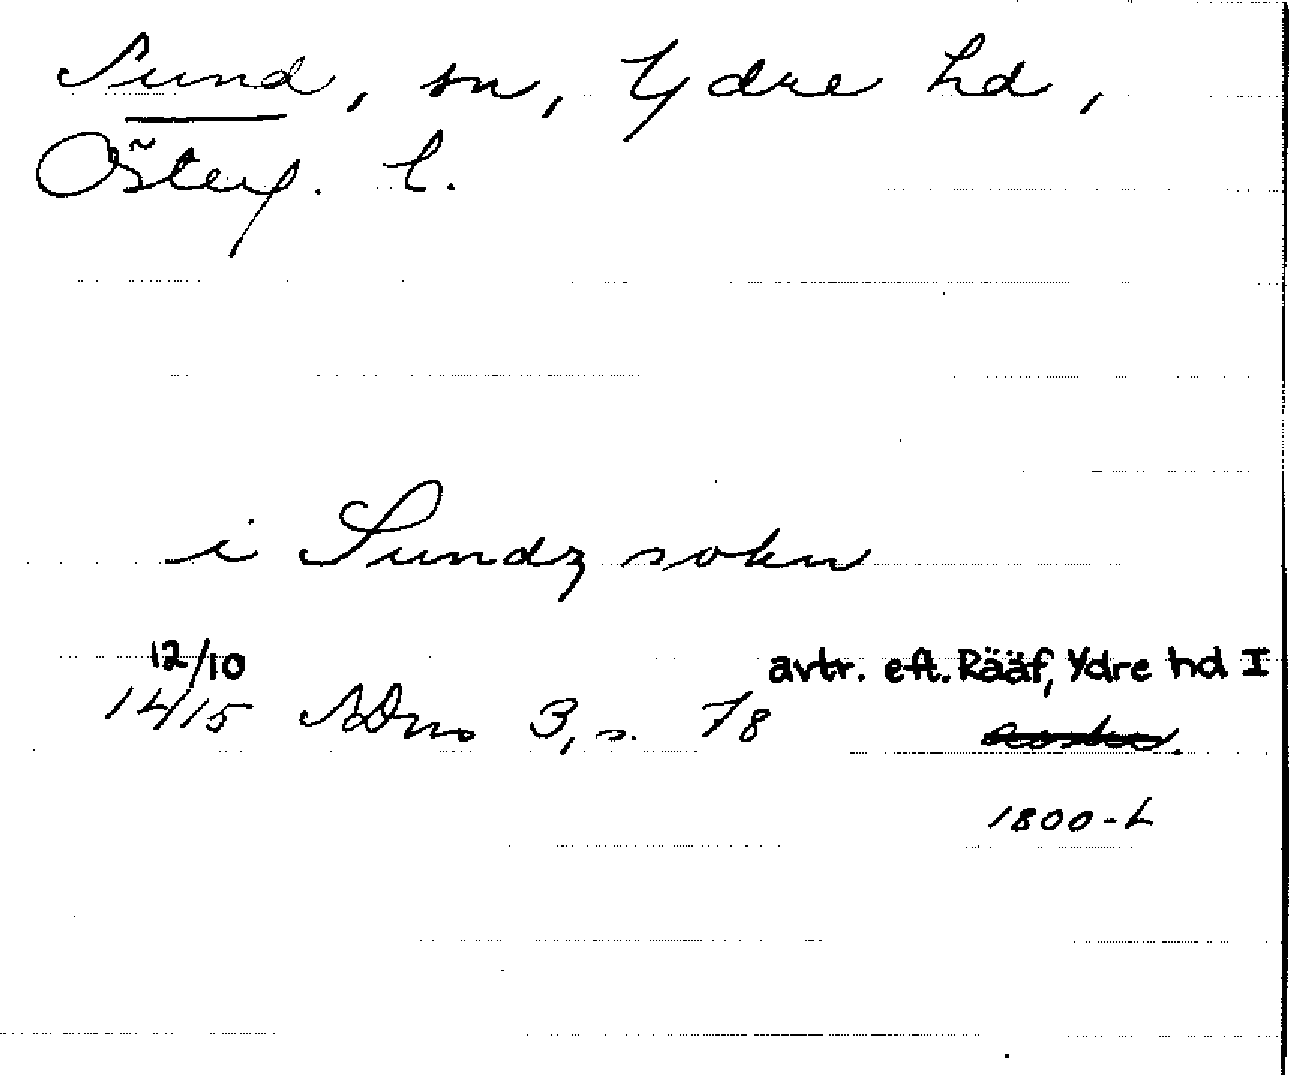 Sund, sn, Ydre hd,
Österg. l.
i Sundz sokn
12/10
1415 SDns 3, s. 78
avtr. eft. Rääf, Ydre hd I
1800-t